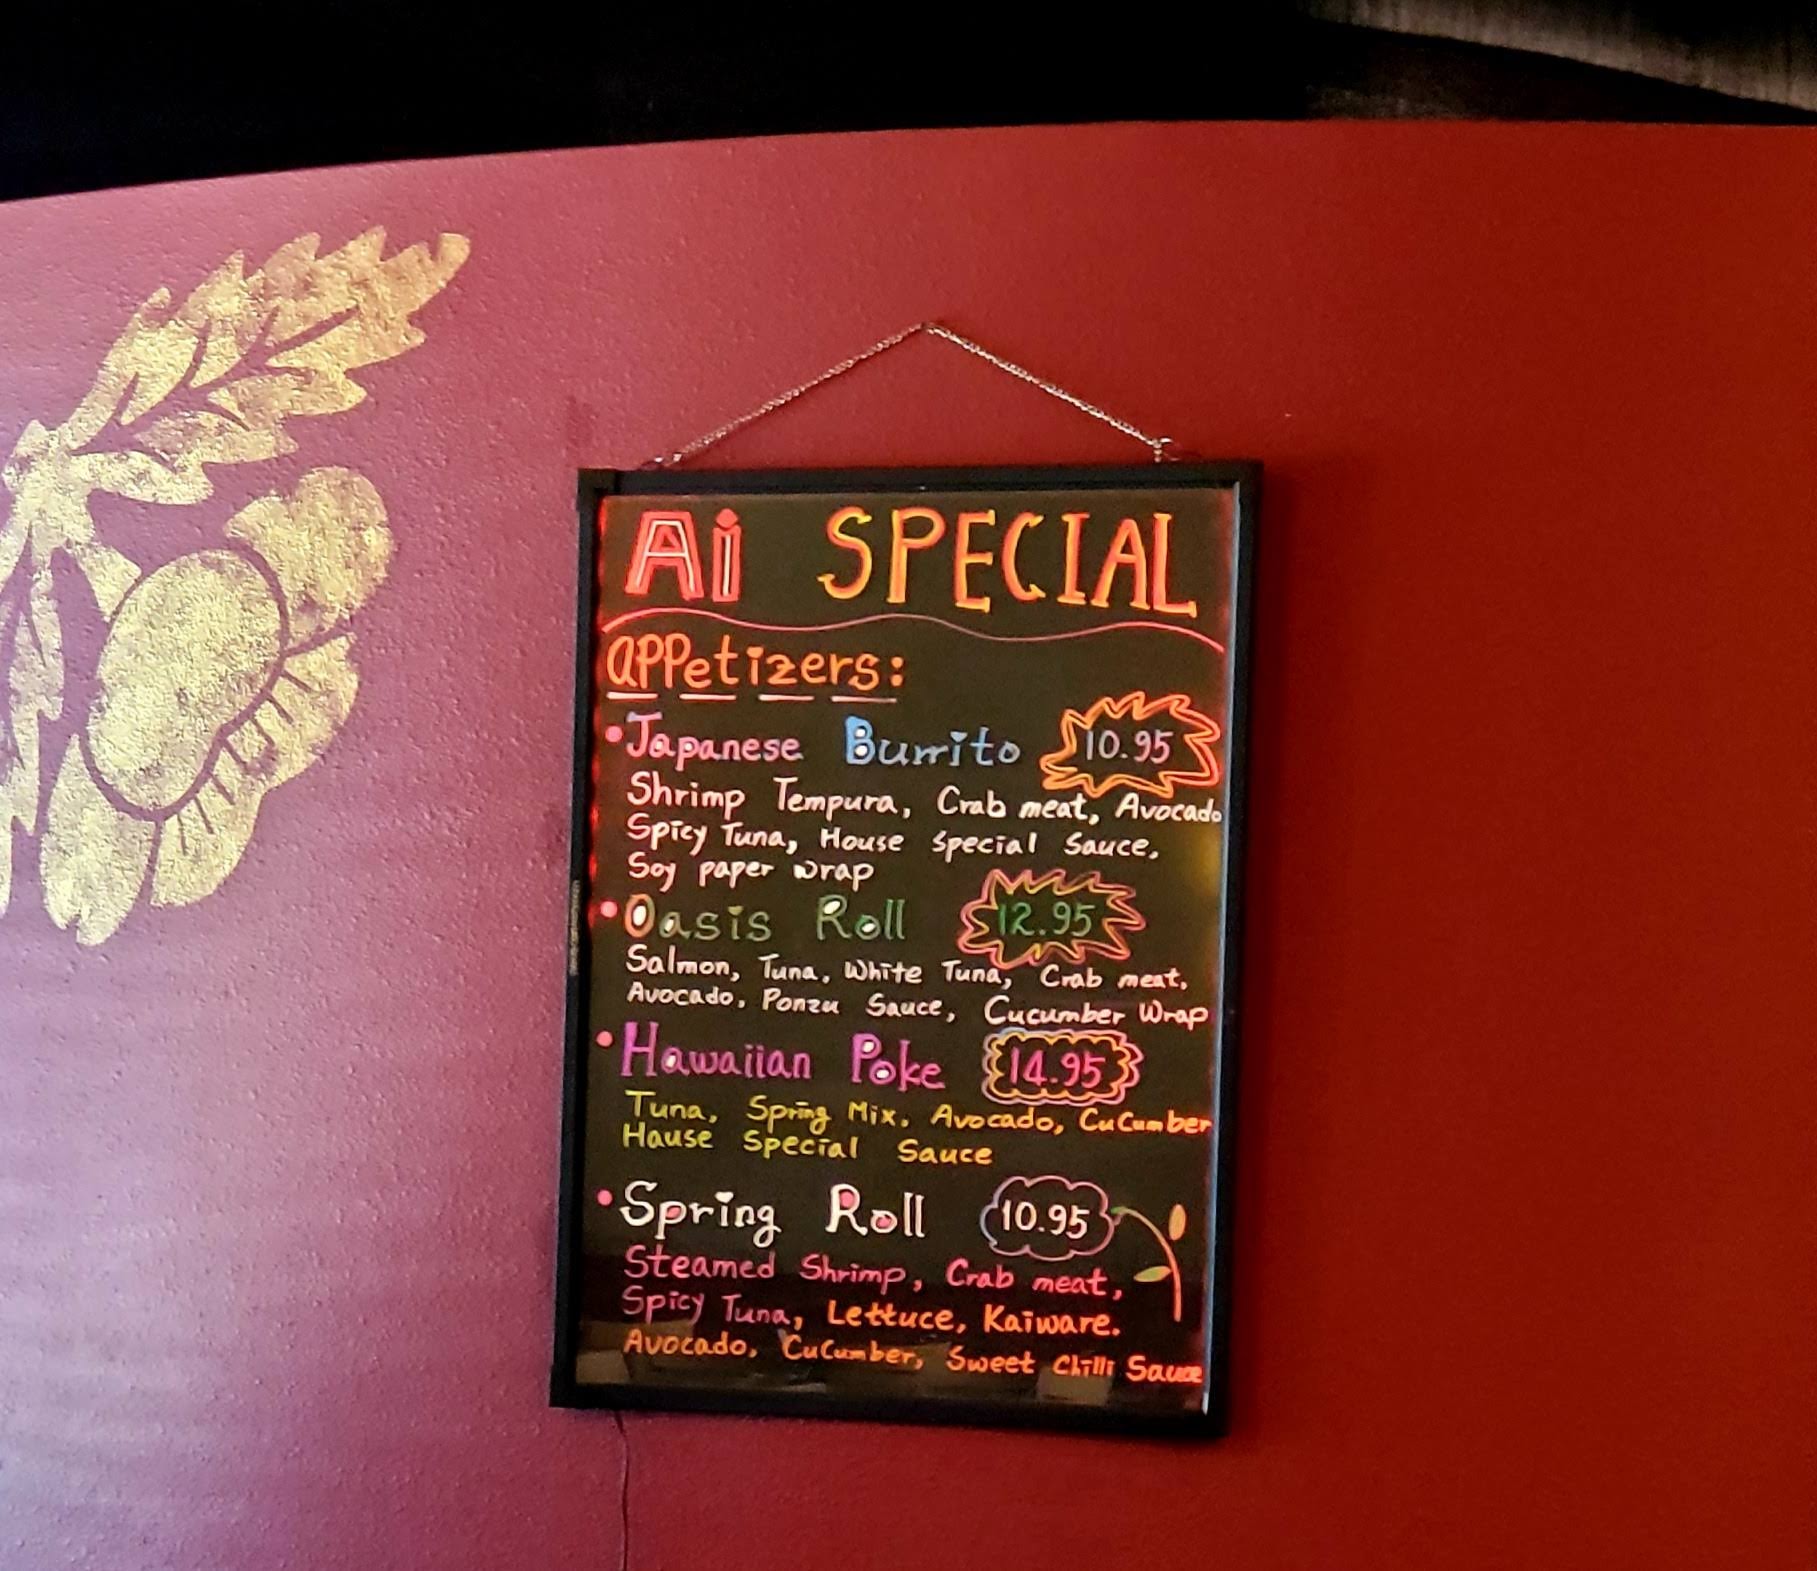 Ai SPECIAL
appetizers:
• Japanese Burrito 10.95
Shrimp Tempura, Crab meat, Avocado
Spicy Tuna, House Special Sauce,
Soy paper wrap
• Oasis Roll 12.95
Salmon, Tuna, White Tuna, Crab meat,
Avocado, Ponzu Sauce, Cucumber Wrap
• Hawaiian Poke 14.95
Tuna, Spring Mix, Avocado, CuCumber
Hause Special Sauce
• Spring Roll 10.95
Steamed Shrimp, Crab meat,
Spicy Tuna, Lettuce, Kaiware.
Avocado, CuCumber, Sweet Chilli Sauce